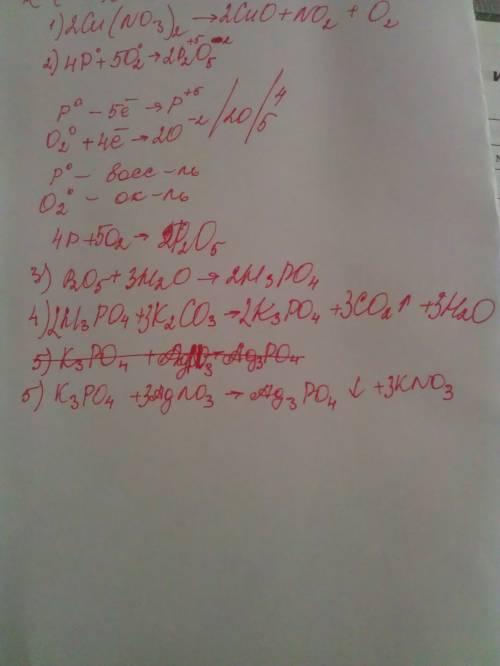 1) 2Cu(NO3)2 → 2CuO + NO2 + O2
2) 4P⁰ + 5O2⁰ → 2P2⁺⁵O5⁻²
P⁰ - 5e̅ → P⁺⁵ / 20 / 4
O2⁰ + 4e̅ → 2O⁻² / 5
P⁰ - восс-ль
O2⁰ - ок-ль
4P + 5O2 → 2P2O5
3) P2O5 + 3H2O → 2H3PO4
4) 2H3PO4 + 3K2CO3 → 2K3PO4 + 3CO2↑ + 3H2O
5) K3PO4 + AgNO3 → Ag3PO4
5) K3PO4 + 3AgNO3 → Ag3PO4 ↓ + 3KNO3